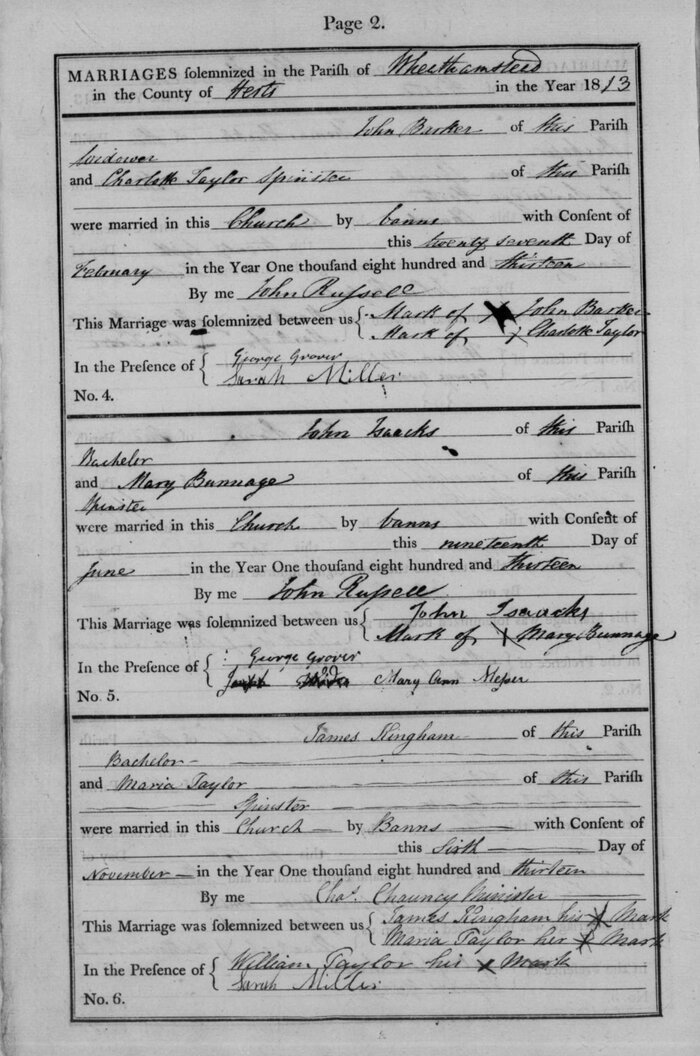 Page 2.
MARRIAGES solemnized in the Parish of Wheathamsteed
in the County of Herts in the Year 1813
John Barker of this Parish
Widower
and Charlotte Taylor Spinster of this Parish
were married in this Church by banns with Consent of
this twenty seventh Day of
February in the Year One thousand eight hundred and thirteen
By me John Russell
This Marriage was solemnized between us { Mark of X John Barker
Mark of X Charlotte Taylor
In the Presence of { George Grover
Sarah Miller
No. 4.
John Isaacks of this Parish
Bachelor
and Mary Bunnage of this Parish
Spinster
were married in this Church by banns with Consent of
this nineteenth Day of
June in the Year One thousand eight hundred and thirteen
By me John Russell
This Marriage was solemnized between us { John Isaacks
Mark of X Mary Bunnage
In the Presence of { George Grover
Mary Ann Messer
No. 5.
James Kingham of this Parish
Bachelor
and Maria Taylor of this Parish
Spinster
were married in this Church by Banns with Consent of
this Sixth Day of
November in the Year One thousand eight hundred and thirteen
By me Chas. Chauncy Minister
This Marriage was solemnized between us { James Kingham his X Mark
Maria Taylor her X Mark
In the Presence of { William Taylor his X Mark
Sarah Miller
No. 6.